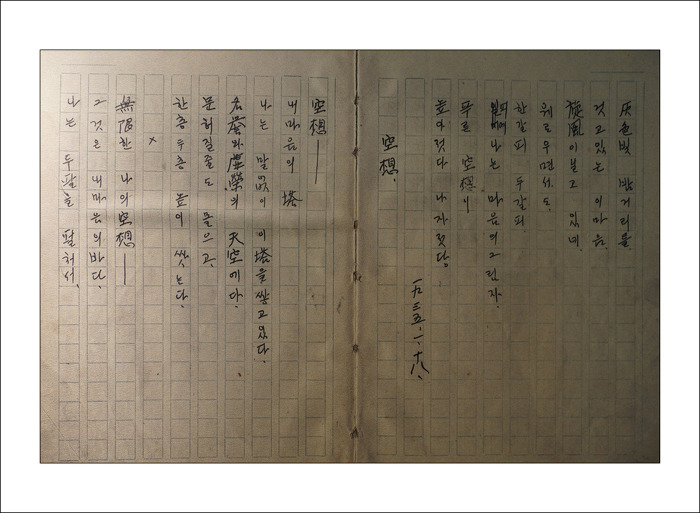 灰色빛 밤거리를
걷고있는 이마음,
旋風이닐고 있네.
웨로우면서도,
한갈피 두갈피,
피여나는 마음의그림자,
푸른 空想이
높아젓다 나자젓다.
一九三五、一、十八、
空想.
空想——
내마음의 塔
나는 말없이 이塔을쌓고있다.
名誉와虛榮의 天空에다,
문허질줄도 몰으고,
한층두층 높이 쌋는다.
×
無限한 나의空想——
그것은 내마음의바다,
나는 두팔을 펼처서,